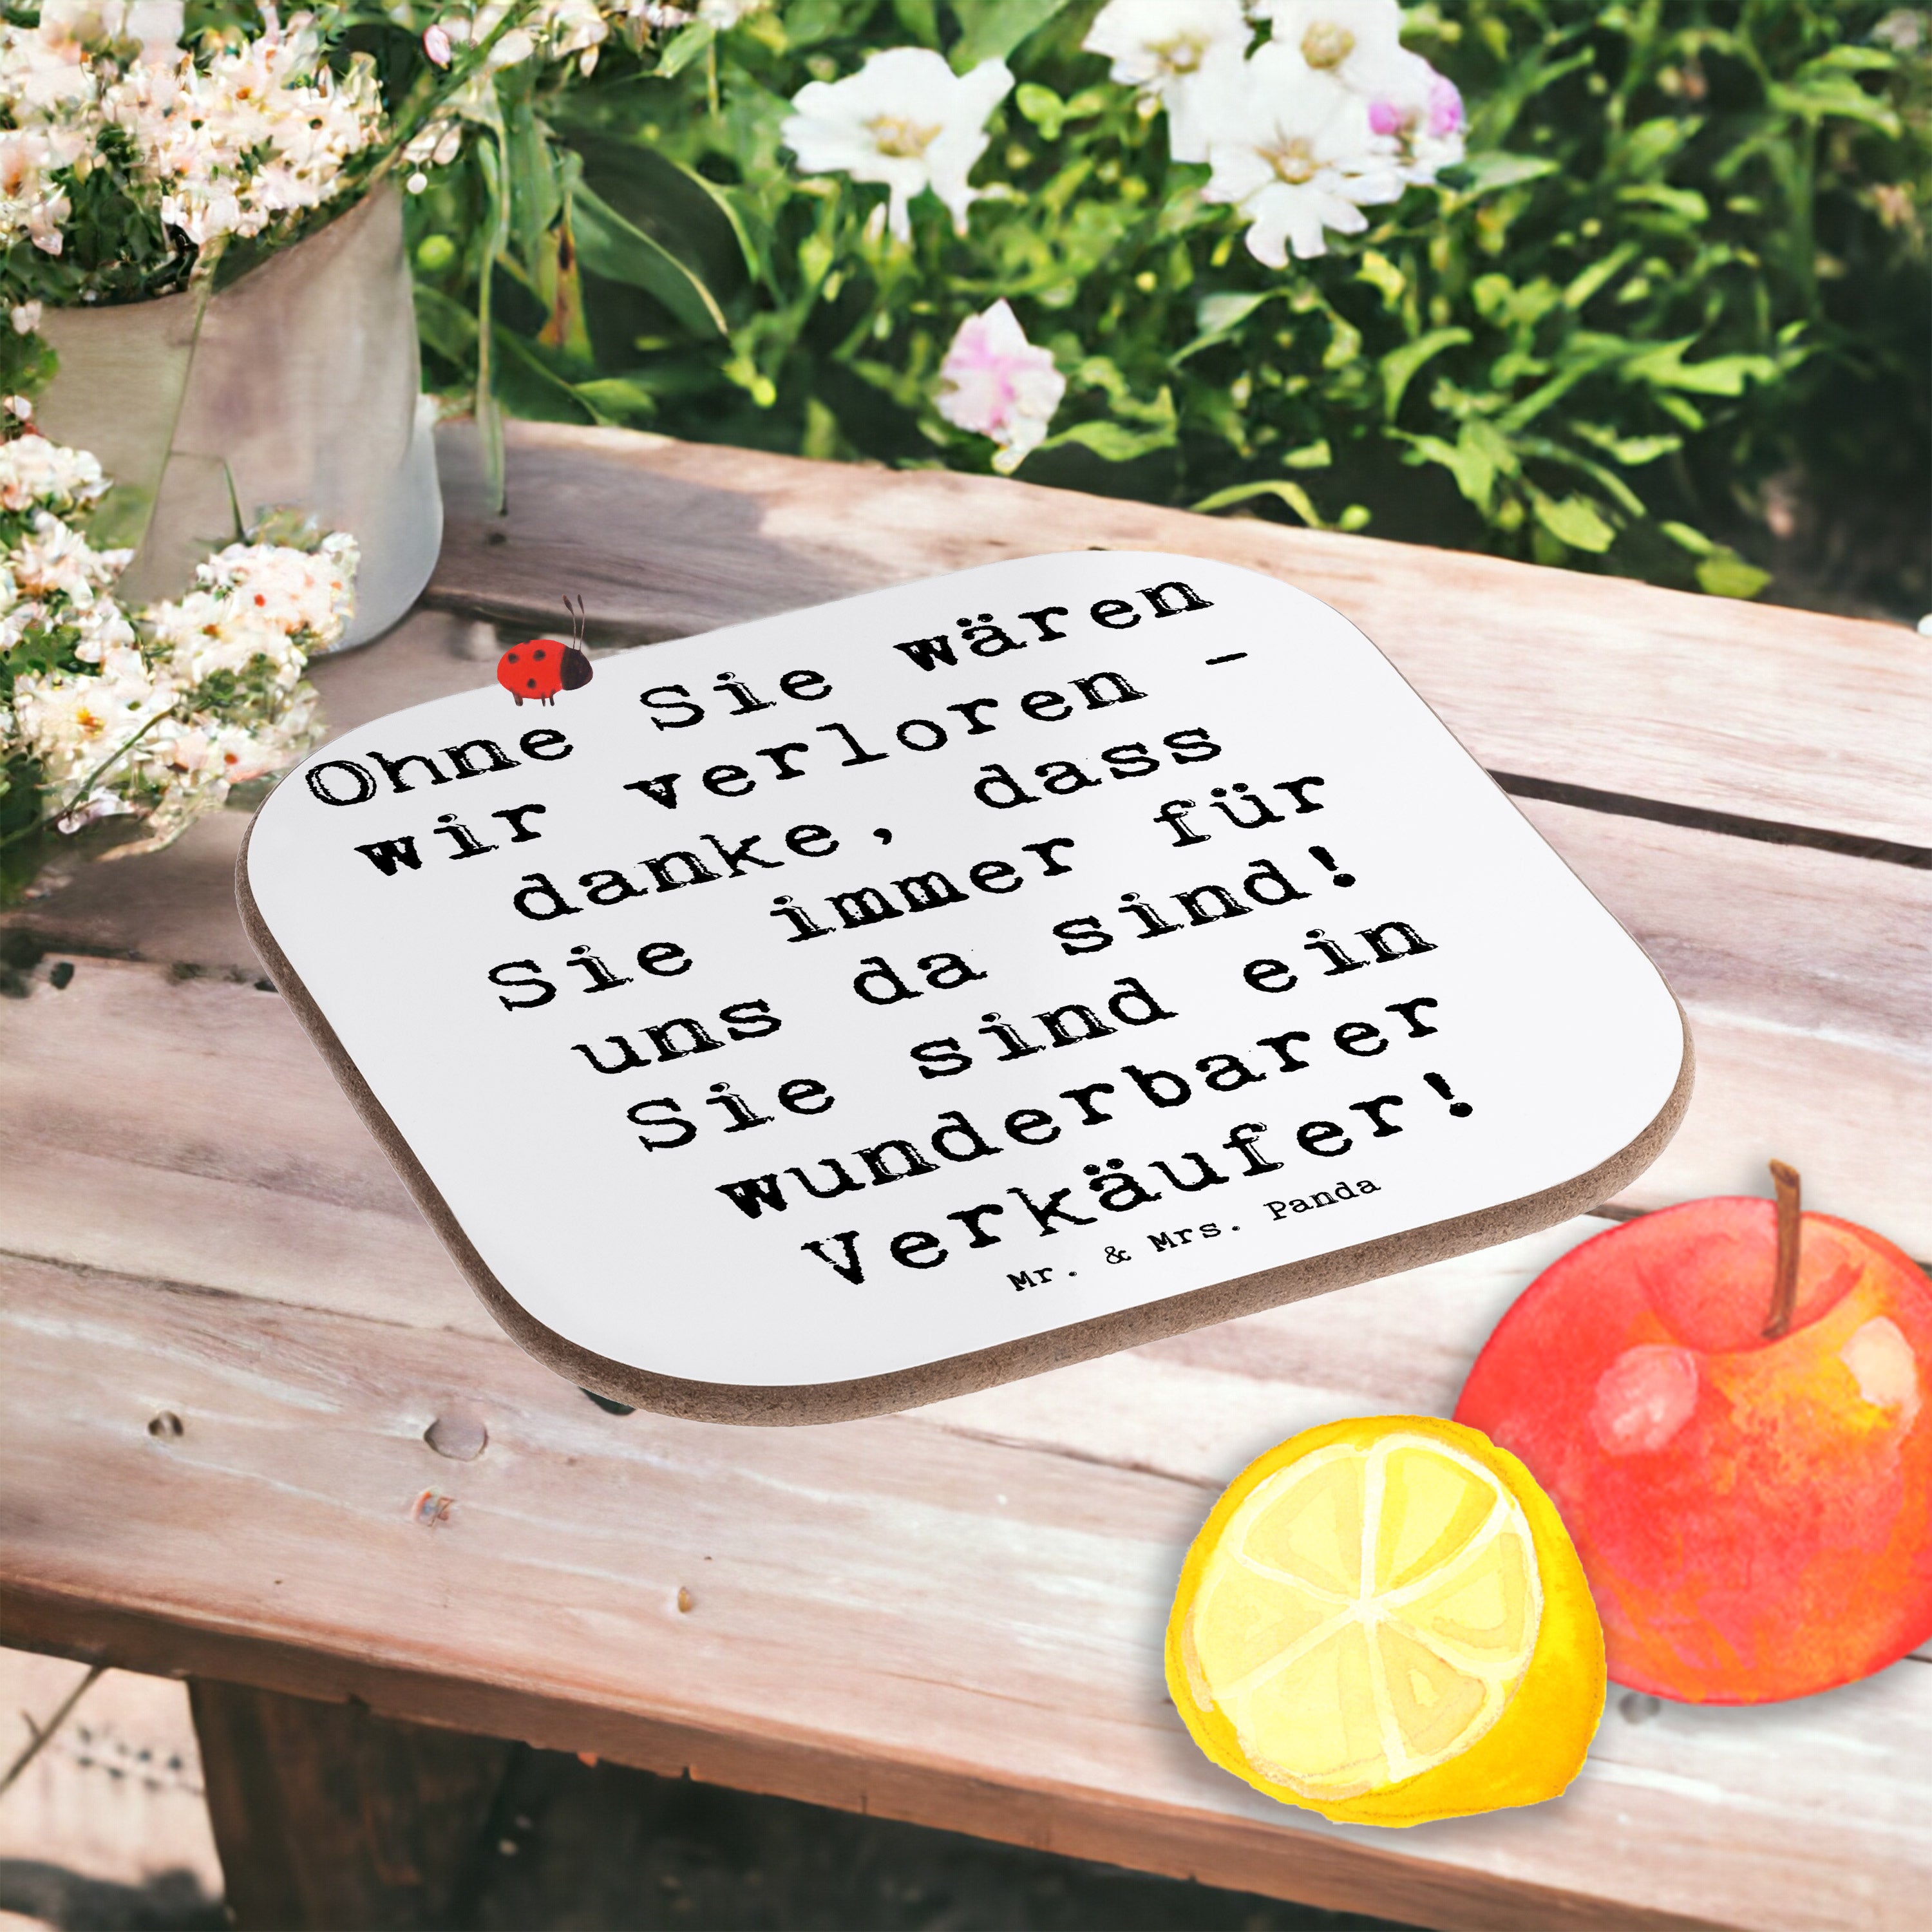 Ohne Sie wären
wir verloren -
danke, dass
Sie immer für
uns da sind!
Sie sind ein
wunderbarer
Verkäufer!
Mr. & Mrs. Panda